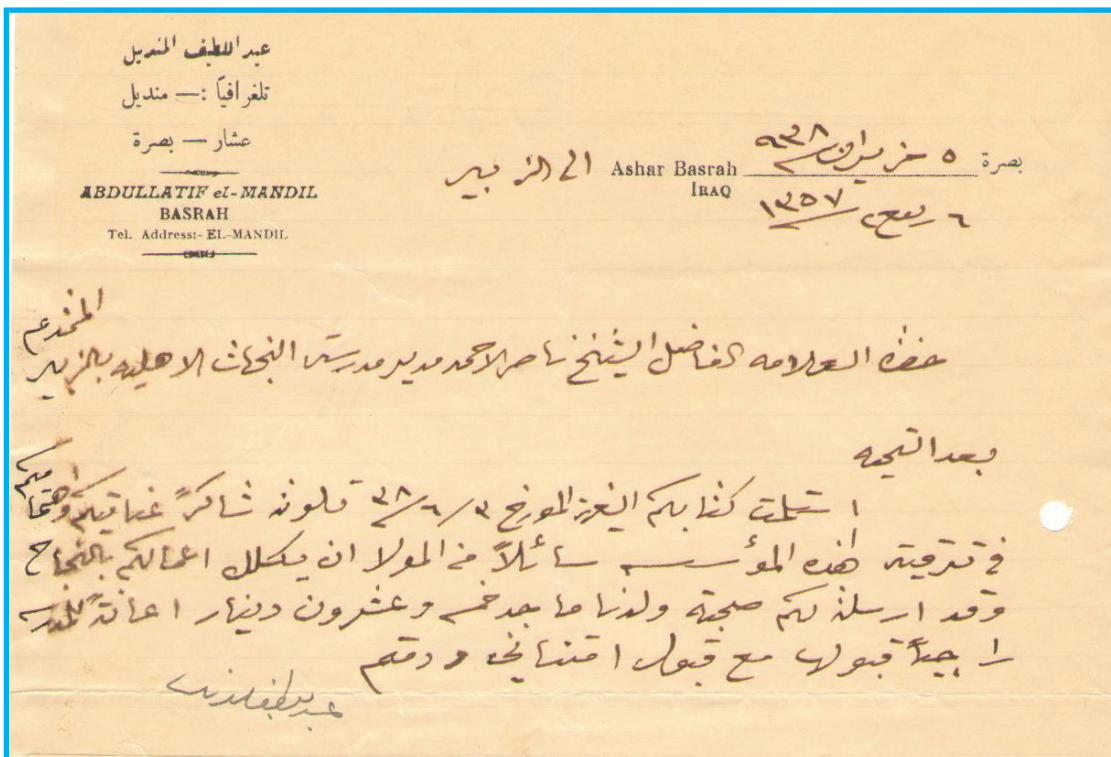 عبد اللطيف المنديل
تلغرافياً :— منديل
عشار — بصرة
ABDULLATIF el-MANDIL
BASRAH
Tel. Address:- EL-MANDIL
بصرة ٥ حزيران ٩٣٨
Ashar Basrah
IRAQ
٦ ربيع ٢ ١٣٥٧
الى الزبير
حضرة العلامه الفاضل الشيخ ناصر الاحمد مدير مدرسة النجاة الاهليه بالزبير
المحترم
بعد التحيه
استلمت كتابكم المورخ ٣/٦/٣٨ تلوته شاكراً عنايتكم واهتمامكم
في ترقية هذه المؤسسه سائلاً من المولا ان يكلل اعمالكم بالنجاح
وقد ارسلنا لكم صحبة ولدنا ماجد خمسه وعشرون دينار اعانةً للمدرسه
راجياً قبولها مع قبول امتناني ودمتم